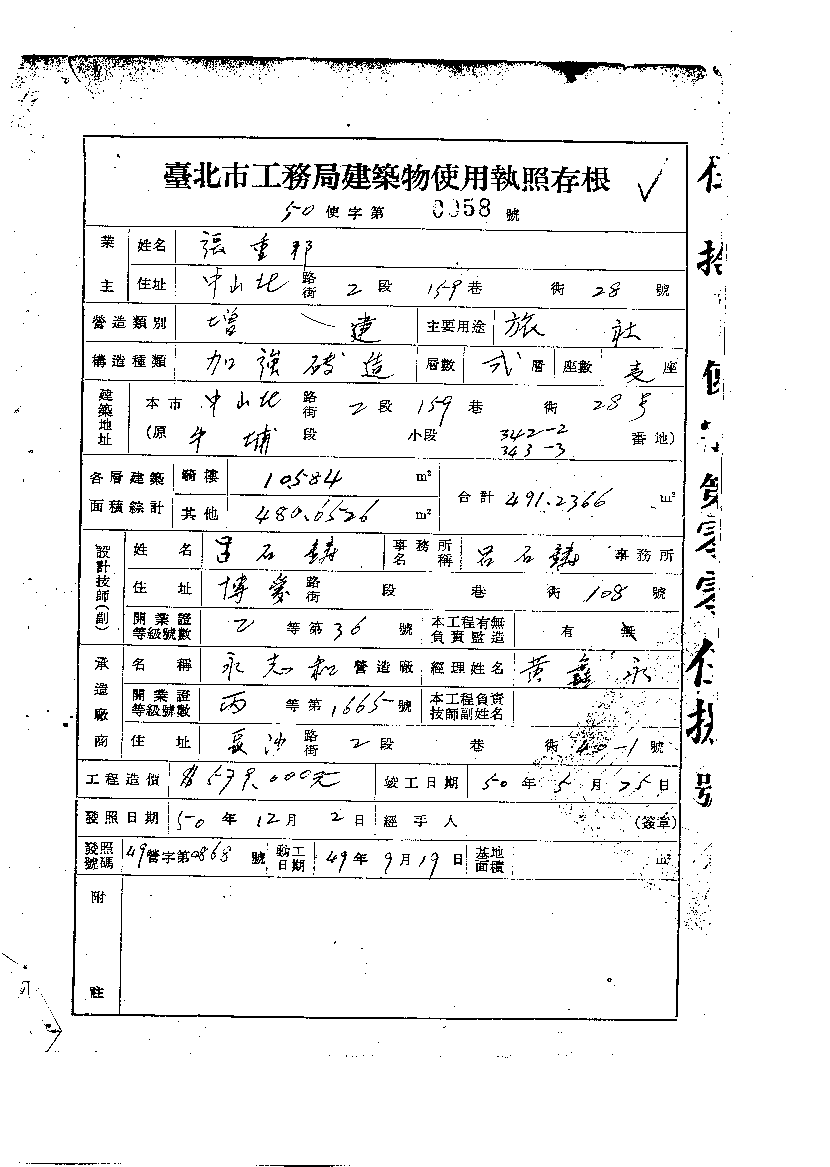 臺北市工務局建築物使用執照存根
50 使字第 0058 號
業主 姓名 張重邦
住址 中山北 路街 2 段 159 巷 街 28 號
營造類別 增建 主要用途 旅社
構造種類 加強磚造 層數 弍 層 座數 壱 座
建築地址 本市 中山北 路街 2 段 159 巷 街 28号
(原 牛埔 段 小段 342-2 343-3 番地)
各層建築面積綜計 騎樓 10.584 m² 合計 491.2366 m²
其他 480.6526 m²
設計技師(副) 姓名 呂石鑄 事務所名稱 呂石鑄 事務所
住址 博愛 路街 段 巷 街 108 號
開業證等級號數 乙 等第 36 號 本工程有無負責監造 有 無
承造廠商 名稱 永志和 營造廠 經理姓名 黄鑫永
開業證等級號數 丙 等第 1665 號 本工程負責技師副姓名
住址 長沙 路街 2 段 巷 街 40-1 號
工程造價 $579,000元 竣工日期 50 年 5 月 25 日
發照日期 50 年 12 月 2 日 經手人 (簽章)
發照號碼 49 營字第 0868 號 動工日期 49 年 9 月 19 日 基地面積 m²
附註